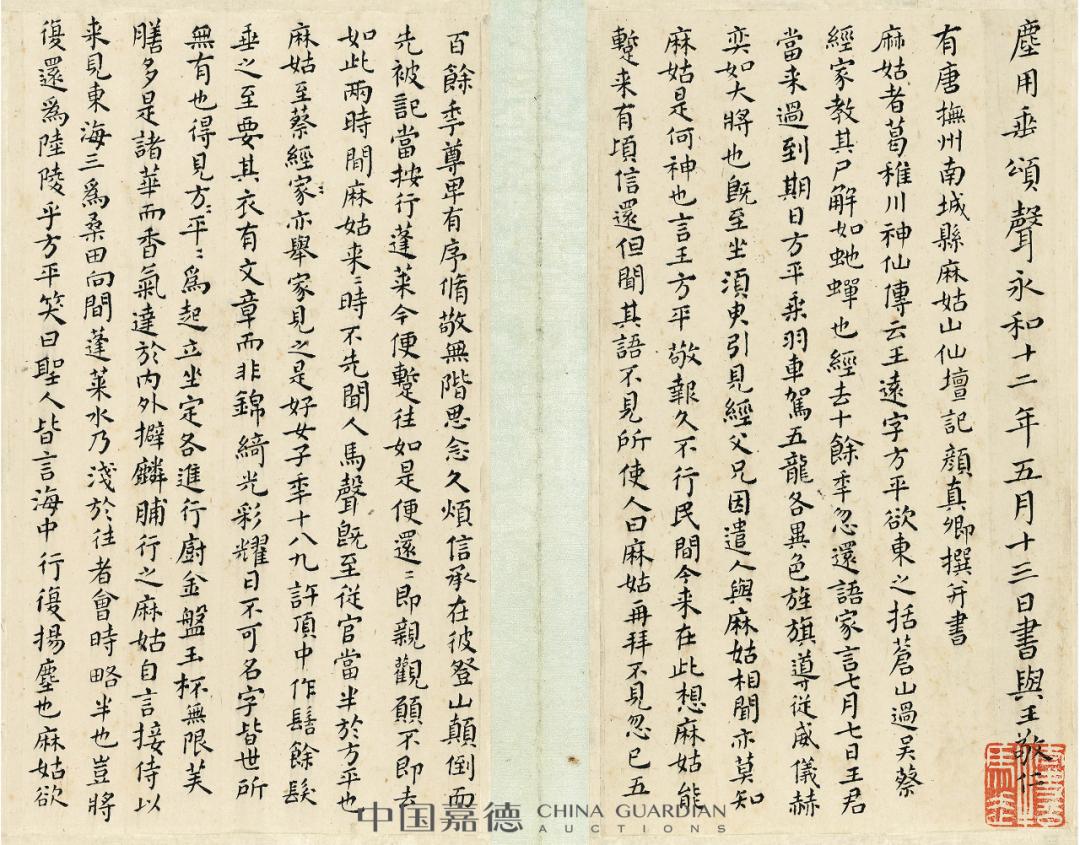 塵用垂頌聲永和十二年五月十三日書與王敬仁
有唐撫州南城縣麻姑山仙壇記顏真卿撰并書
麻姑者葛稚川神仙傳云王遠字方平欲東之括蒼山過吳蔡
經家教其尸解如虵蟬也經去十餘秊忽還語家言七月七日王君
當来過到期日方平乘羽車駕五龍各異色旌旗導從威儀赫
奕如大將也既至坐須臾引見經父兄因遣人與麻姑相聞亦莫知
麻姑是何神也言王方平敬報久不行民間今来在此想麻姑能
蹔来有頃信還但聞其語不見所使人曰麻姑再拜不見忽已五
百餘秊尊卑有序脩敬無階思念久煩信承在彼登山顛倒而
先被記當按行蓬萊今便蹔往如是便還〻即親觀願不即去
如此兩時間麻姑来〻時不先聞人馬聲既至從官當半於方平也
麻姑至蔡經家亦舉家見之是好女子秊十八九許頂中作髻餘髮
垂之至要其衣有文章而非錦綺光彩耀日不可名字皆世所
無有也得見方平〻為起立坐定各進行廚金盤玉杯無限美
膳多是諸華而香氣達於內外擗麟脯行之麻姑自言接侍以
来見東海三為桑田向間蓬萊水乃淺於往者會時略半也豈將
復還為陸陵乎方平笑曰聖人皆言海中行復揚塵也麻姑欲
中国嘉德 CHINA GUARDIAN
AUCTIONS